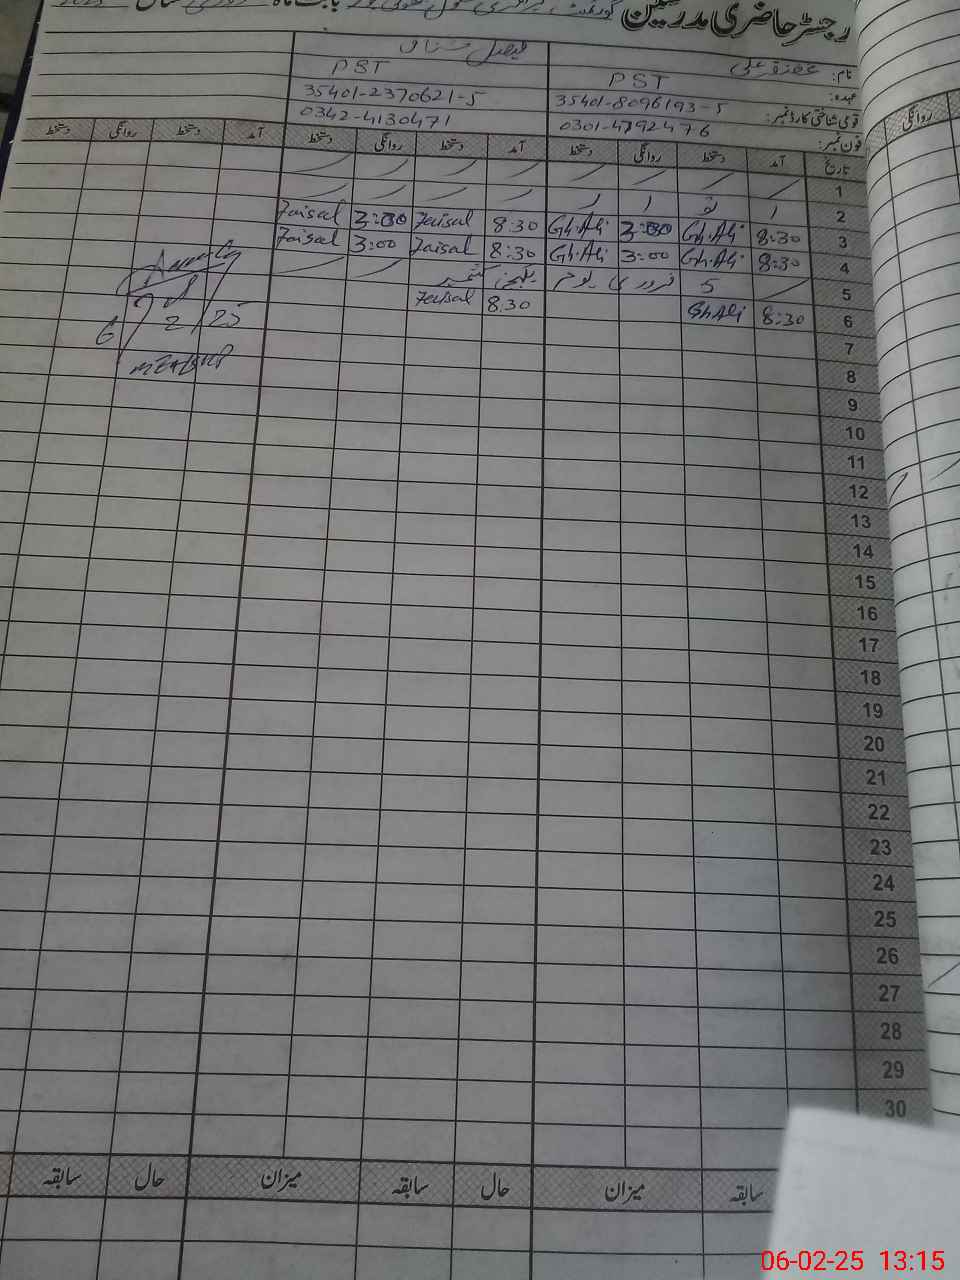 رجسٹر حاضری مدرسین
نام: غضنفر علی فیصل مشتاق
عہدہ: PST PST
قومی شناختی کارڈ نمبر: 35401-8096193-5 35401-2370621-5
فون نمبر: 0301-4792476 0342-4130471
تاریخ آمد دستخط روانگی دستخط آمد دستخط روانگی دستخط آمد دستخط روانگی دستخط
روانگی
1
2
3 8:30 Gh.Ali 3:00 Gh.Ali 8:30 Faisal 3:00 Faisal
4 8:30 Gh.Ali 3:00 Gh.Ali 8:30 Faisal 3:00 Faisal
5 5 فروری یوم یکجہتی کشمیر
6 8:30 Gh Ali 8.30 Faisal
6/2/25
7
8
9
10
11
12
13
14
15
16
17
18
19
20
21
22
23
24
25
26
27
28
29
30
سابقہ میزان حال سابقہ میزان حال سابقہ
06-02-25 13:15